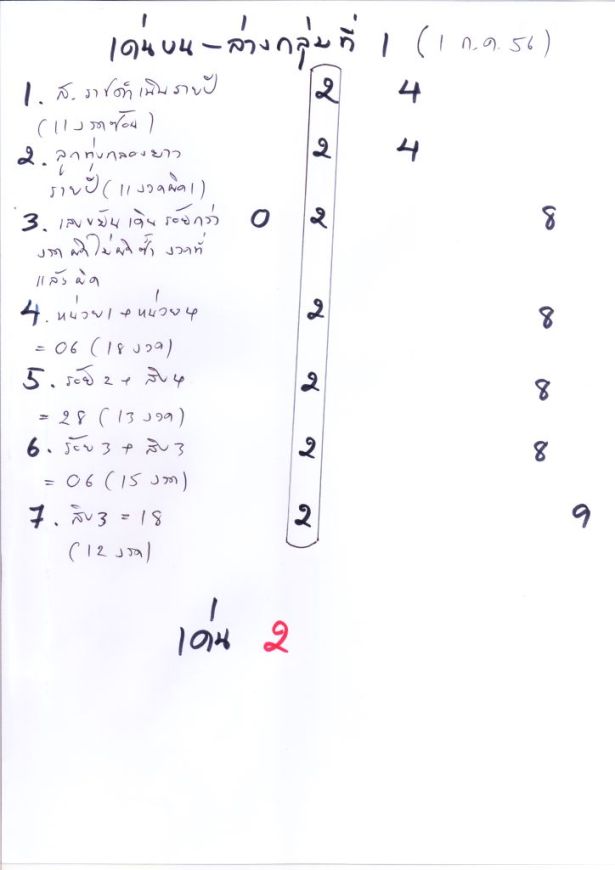 เด่นบน - ล่างกลุ่มที่ 1 (1 ก.ค. 56)
1. ส. ราชดำเนินรายปี 2 4
(11 งวดซ้อน)
2. ลูกทุ่งกลองยาว 2 4
รายปี (11 งวดผิด 1)
3. เลขขยันเดินร้อยกว่า 0 2 8
งวด ผิดไม่ผิดซ้ำ งวดที่
แล้วผิด
4. หน่วย 1 + หน่วย 4 2 8
= 06 (18 งวด)
5. ร้อย 2 + สิบ 4 2 8
= 28 (13 งวด)
6. ร้อย 3 + สิบ 3 2 8
= 06 (15 งวด)
7. สิบ 3 = 18 2 9
(12 งวด)
เด่น 2